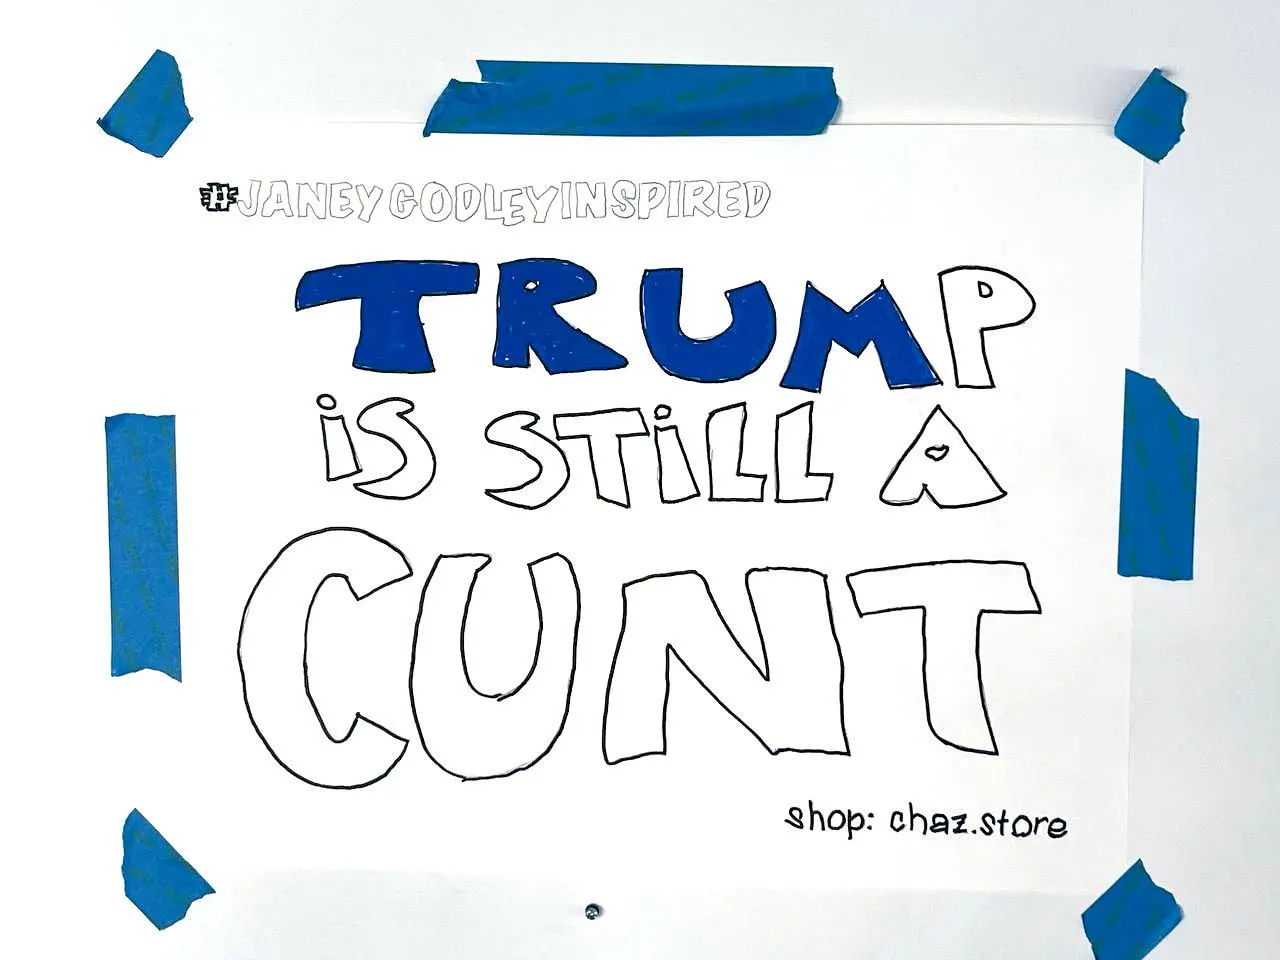 #JANEYGODLEYINSPIRED
TRUMP
iS STiLL A
CUNT
shop: chaz.store